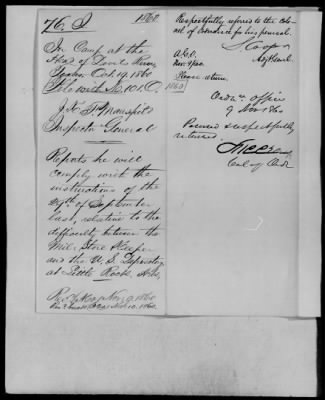 76. I 1860
In Camp at the
Head of Devils River,
Texas Oct 19, 1860
File with No. 101. O.
J. K. F. Mansfield
Inspector General
Reports he will
comply with the
instructions of the
29th of September
last, relative to the
difficulty between the
Mil. Store Keeper
and the U. S. Depository
at Little Rock, Ark.
Rec'd Nov. 9, 1860
Nov. 10, 1860.
Respectfully referred to the Colonel
of Ordnance for his perusal.
S. Cooper
A. G. O.
Nov. 9/60.
Please return.
1860
Ordn. Office
9 Nov 1860
Perused & respectfully
returned
Col of Ord